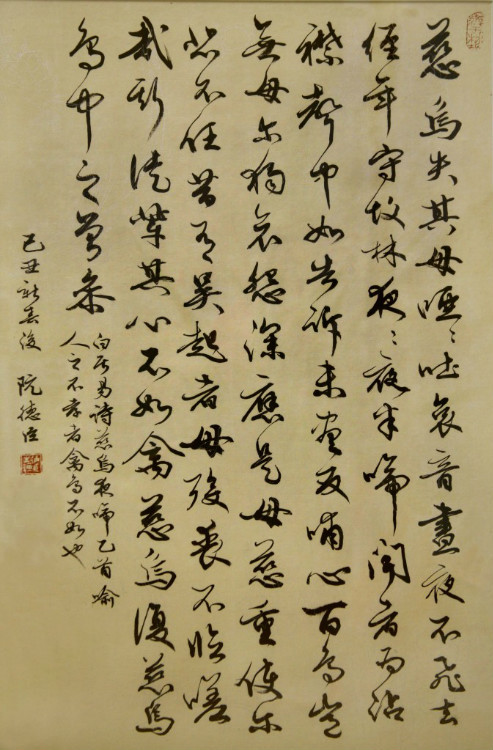 慈烏失其母啞〻吐哀音晝夜不飛去
經年守故林夜〻夜半啼聞者為沾
襟聲中如告訴未盡反哺心百鳥豈
無母爾獨哀怨深應是母慈重使爾
悲不任昔有吳起者母歿喪不臨嗟
哉斯徒輩其心不如禽慈烏復慈烏
鳥中之曾參
白居易詩慈烏夜啼乙首喻
人之不孝者禽鳥不如也
己丑新春後 阮德臣